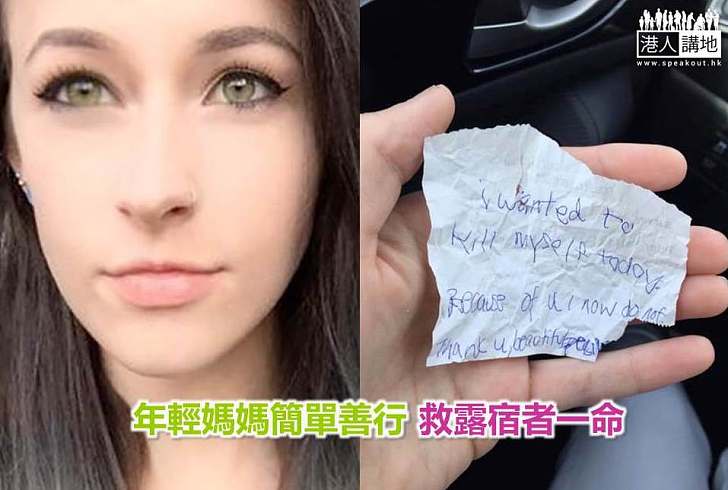 港人講地
www.speakout.hk
i wanted to
kill myself today
Because of u i now do not
Thank u beautiful
年輕媽媽簡單善行 救露宿者一命